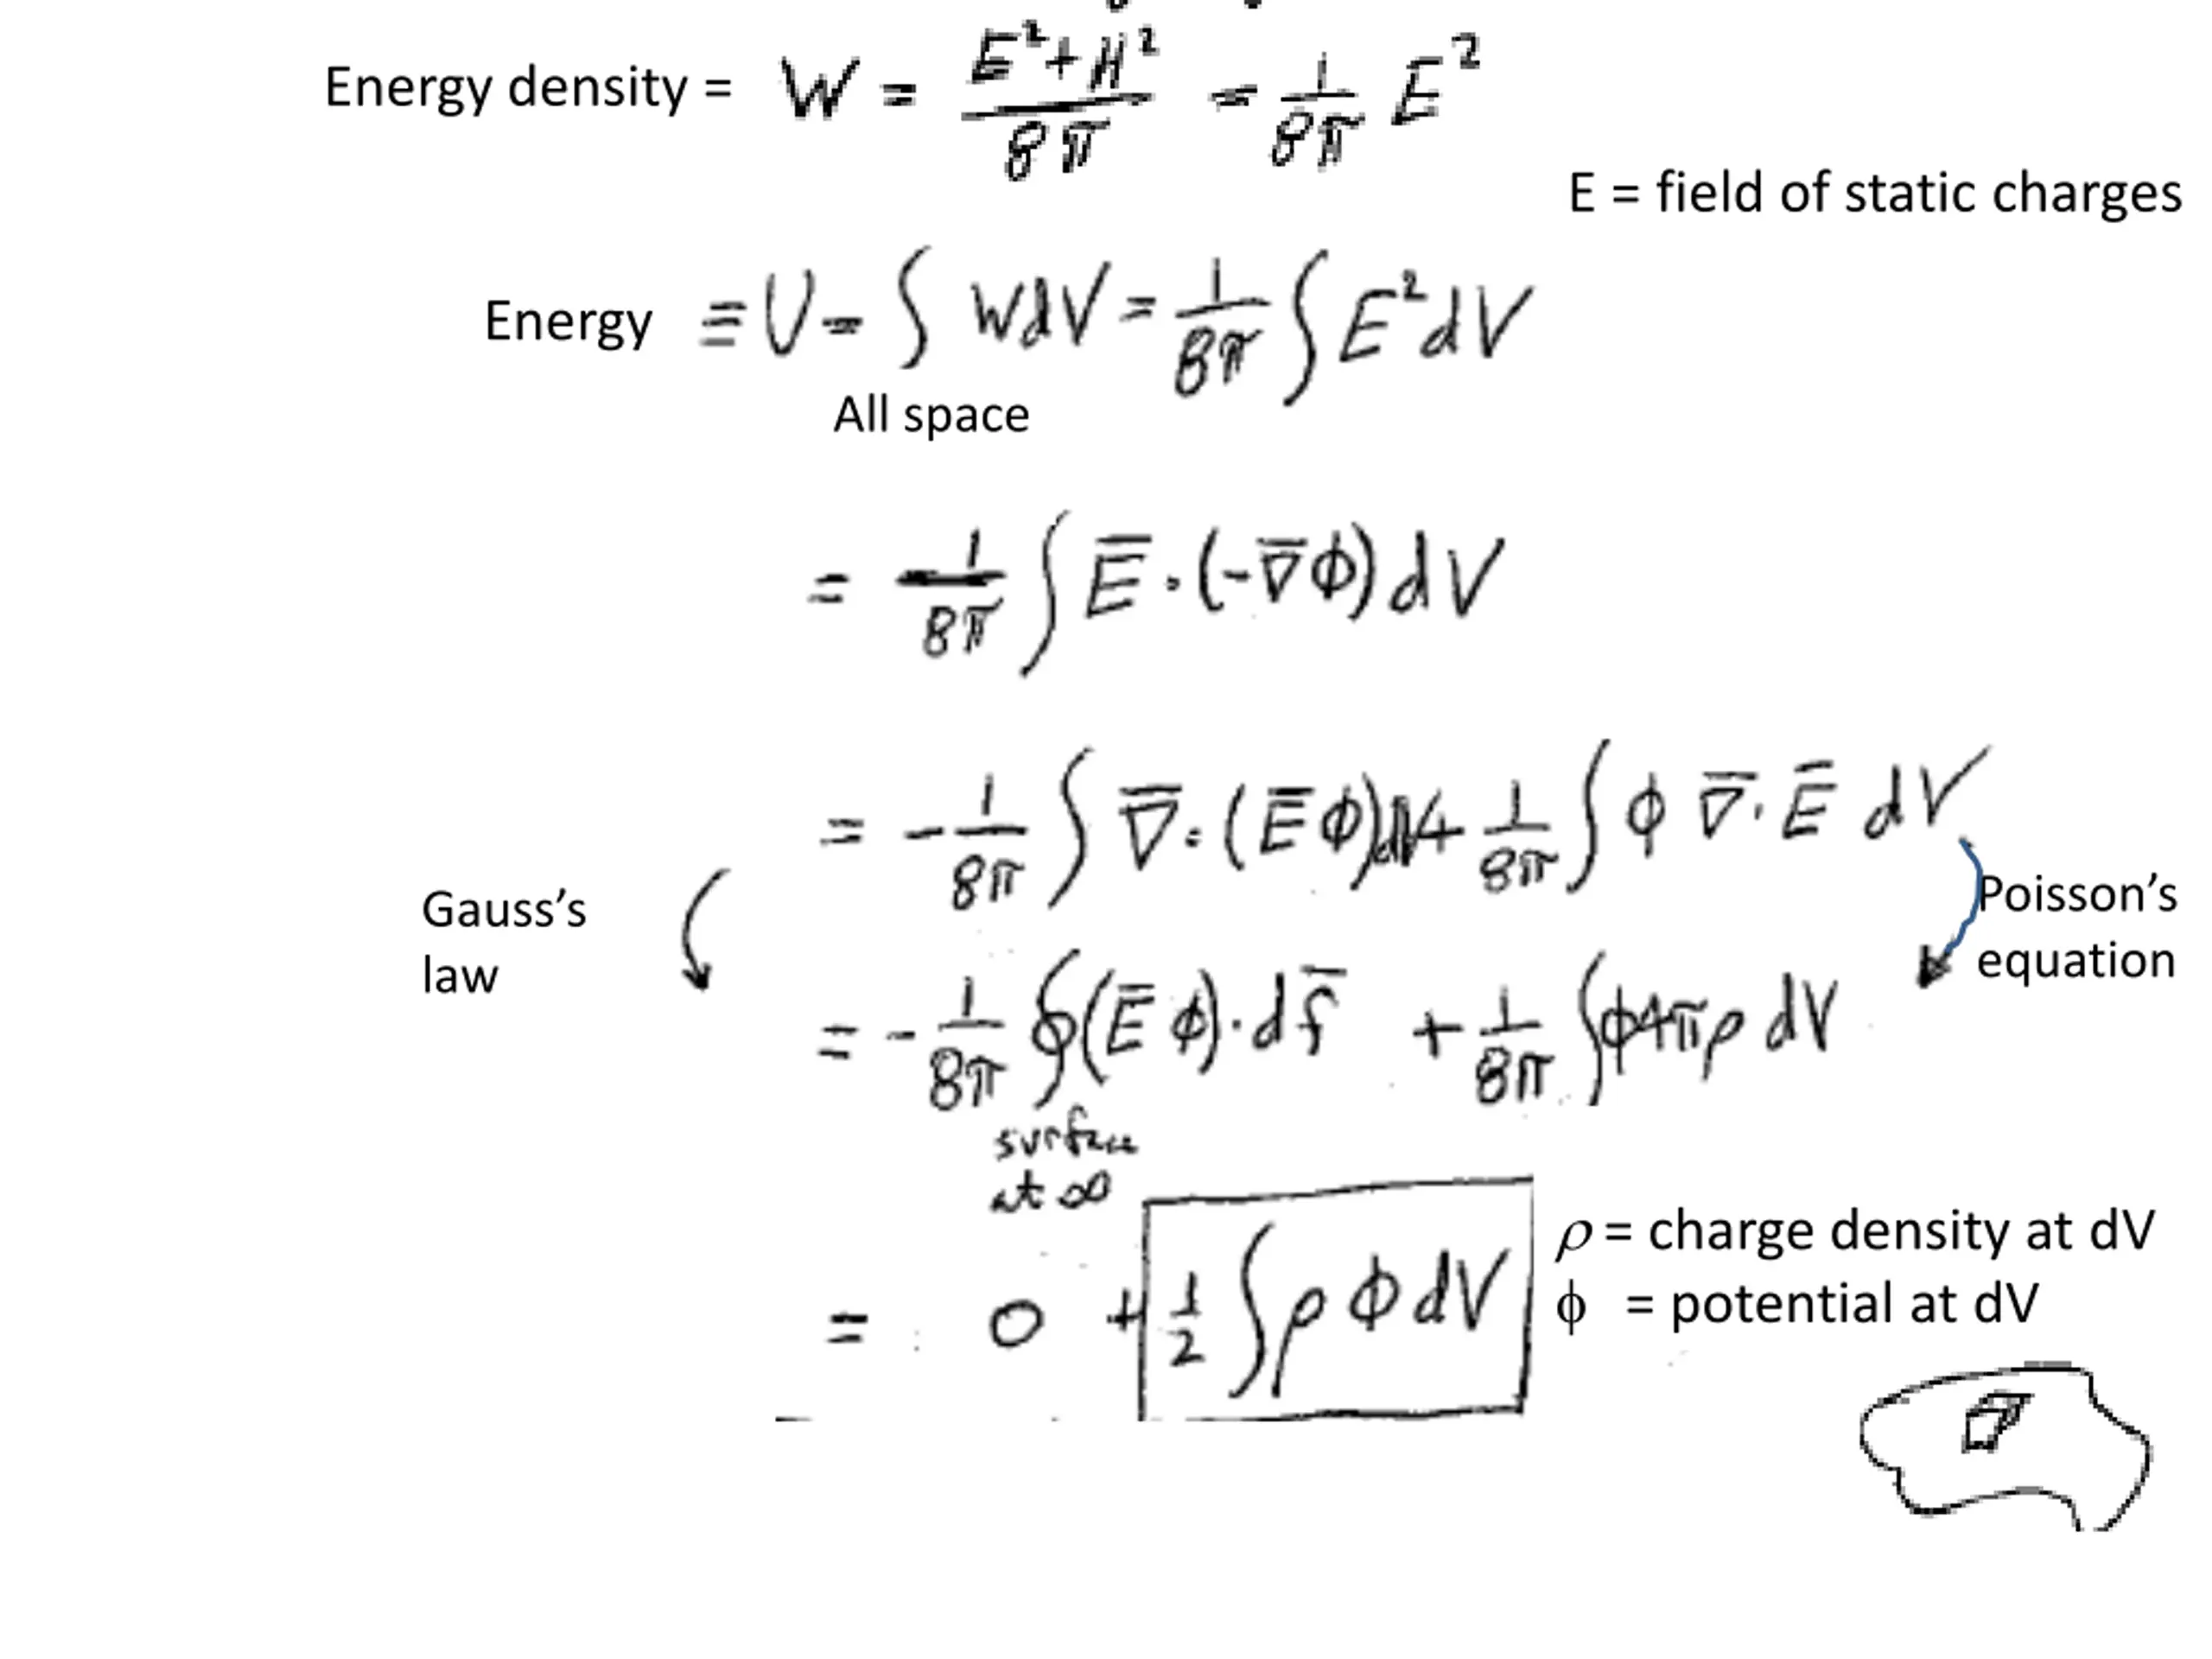 Energy density = W = (E² + H²)/8π = 1/8π E²
E = field of static charges
Energy ≡ U = ∫ W dV = 1/8π ∫ E² dV
All space
= 1/8π ∫ E̅ · (-∇̅ϕ) dV
= - 1/8π ∫ ∇̅ · (E̅ϕ) dV + 1/8π ∫ ϕ ∇̅ · E̅ dV
Gauss's
law
Poisson's
equation
= - 1/8π ∮ (E̅ϕ) · df̅ + 1/8π ∫ ϕ4πρ dV
surface
at ∞
= 0 + 1/2 ∫ ρ ϕ dV
ρ = charge density at dV
ϕ = potential at dV